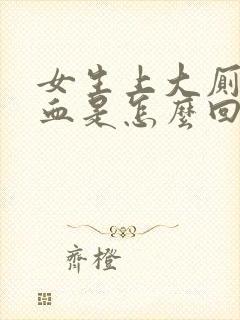 女生上大厕
血是怎麼回
齊橙